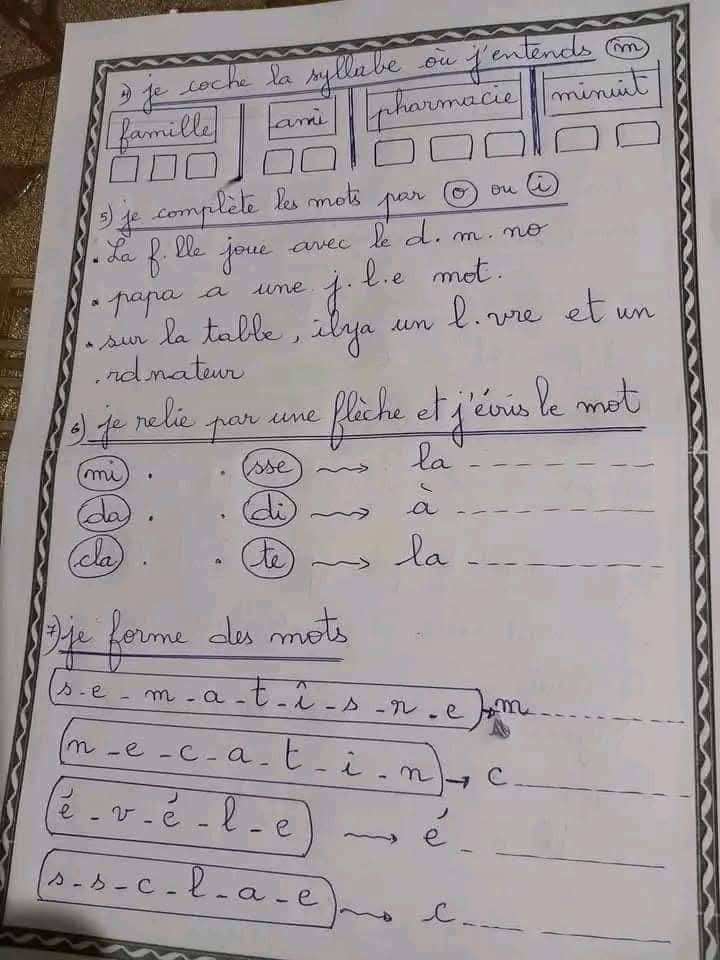 4) je coche la syllabe où j'entends m
famille ami pharmacie minuit
5) je complète les mots par o ou i
. La f.lle joue avec le d.m.no
. papa a une j.l.e mot.
. sur la table, ilya un l.vre et un
.rd.nateur
6) je relie par une flèche et j'écris le mot
mi . . sse → la
da . . di → à
cla . . te → la
7) je forme des mots
s-e-m-a-t-î-s-r-e → m
n-e-c-a-t-i-n → c
é-v-é-l-e → é
s-s-c-l-a-e → c